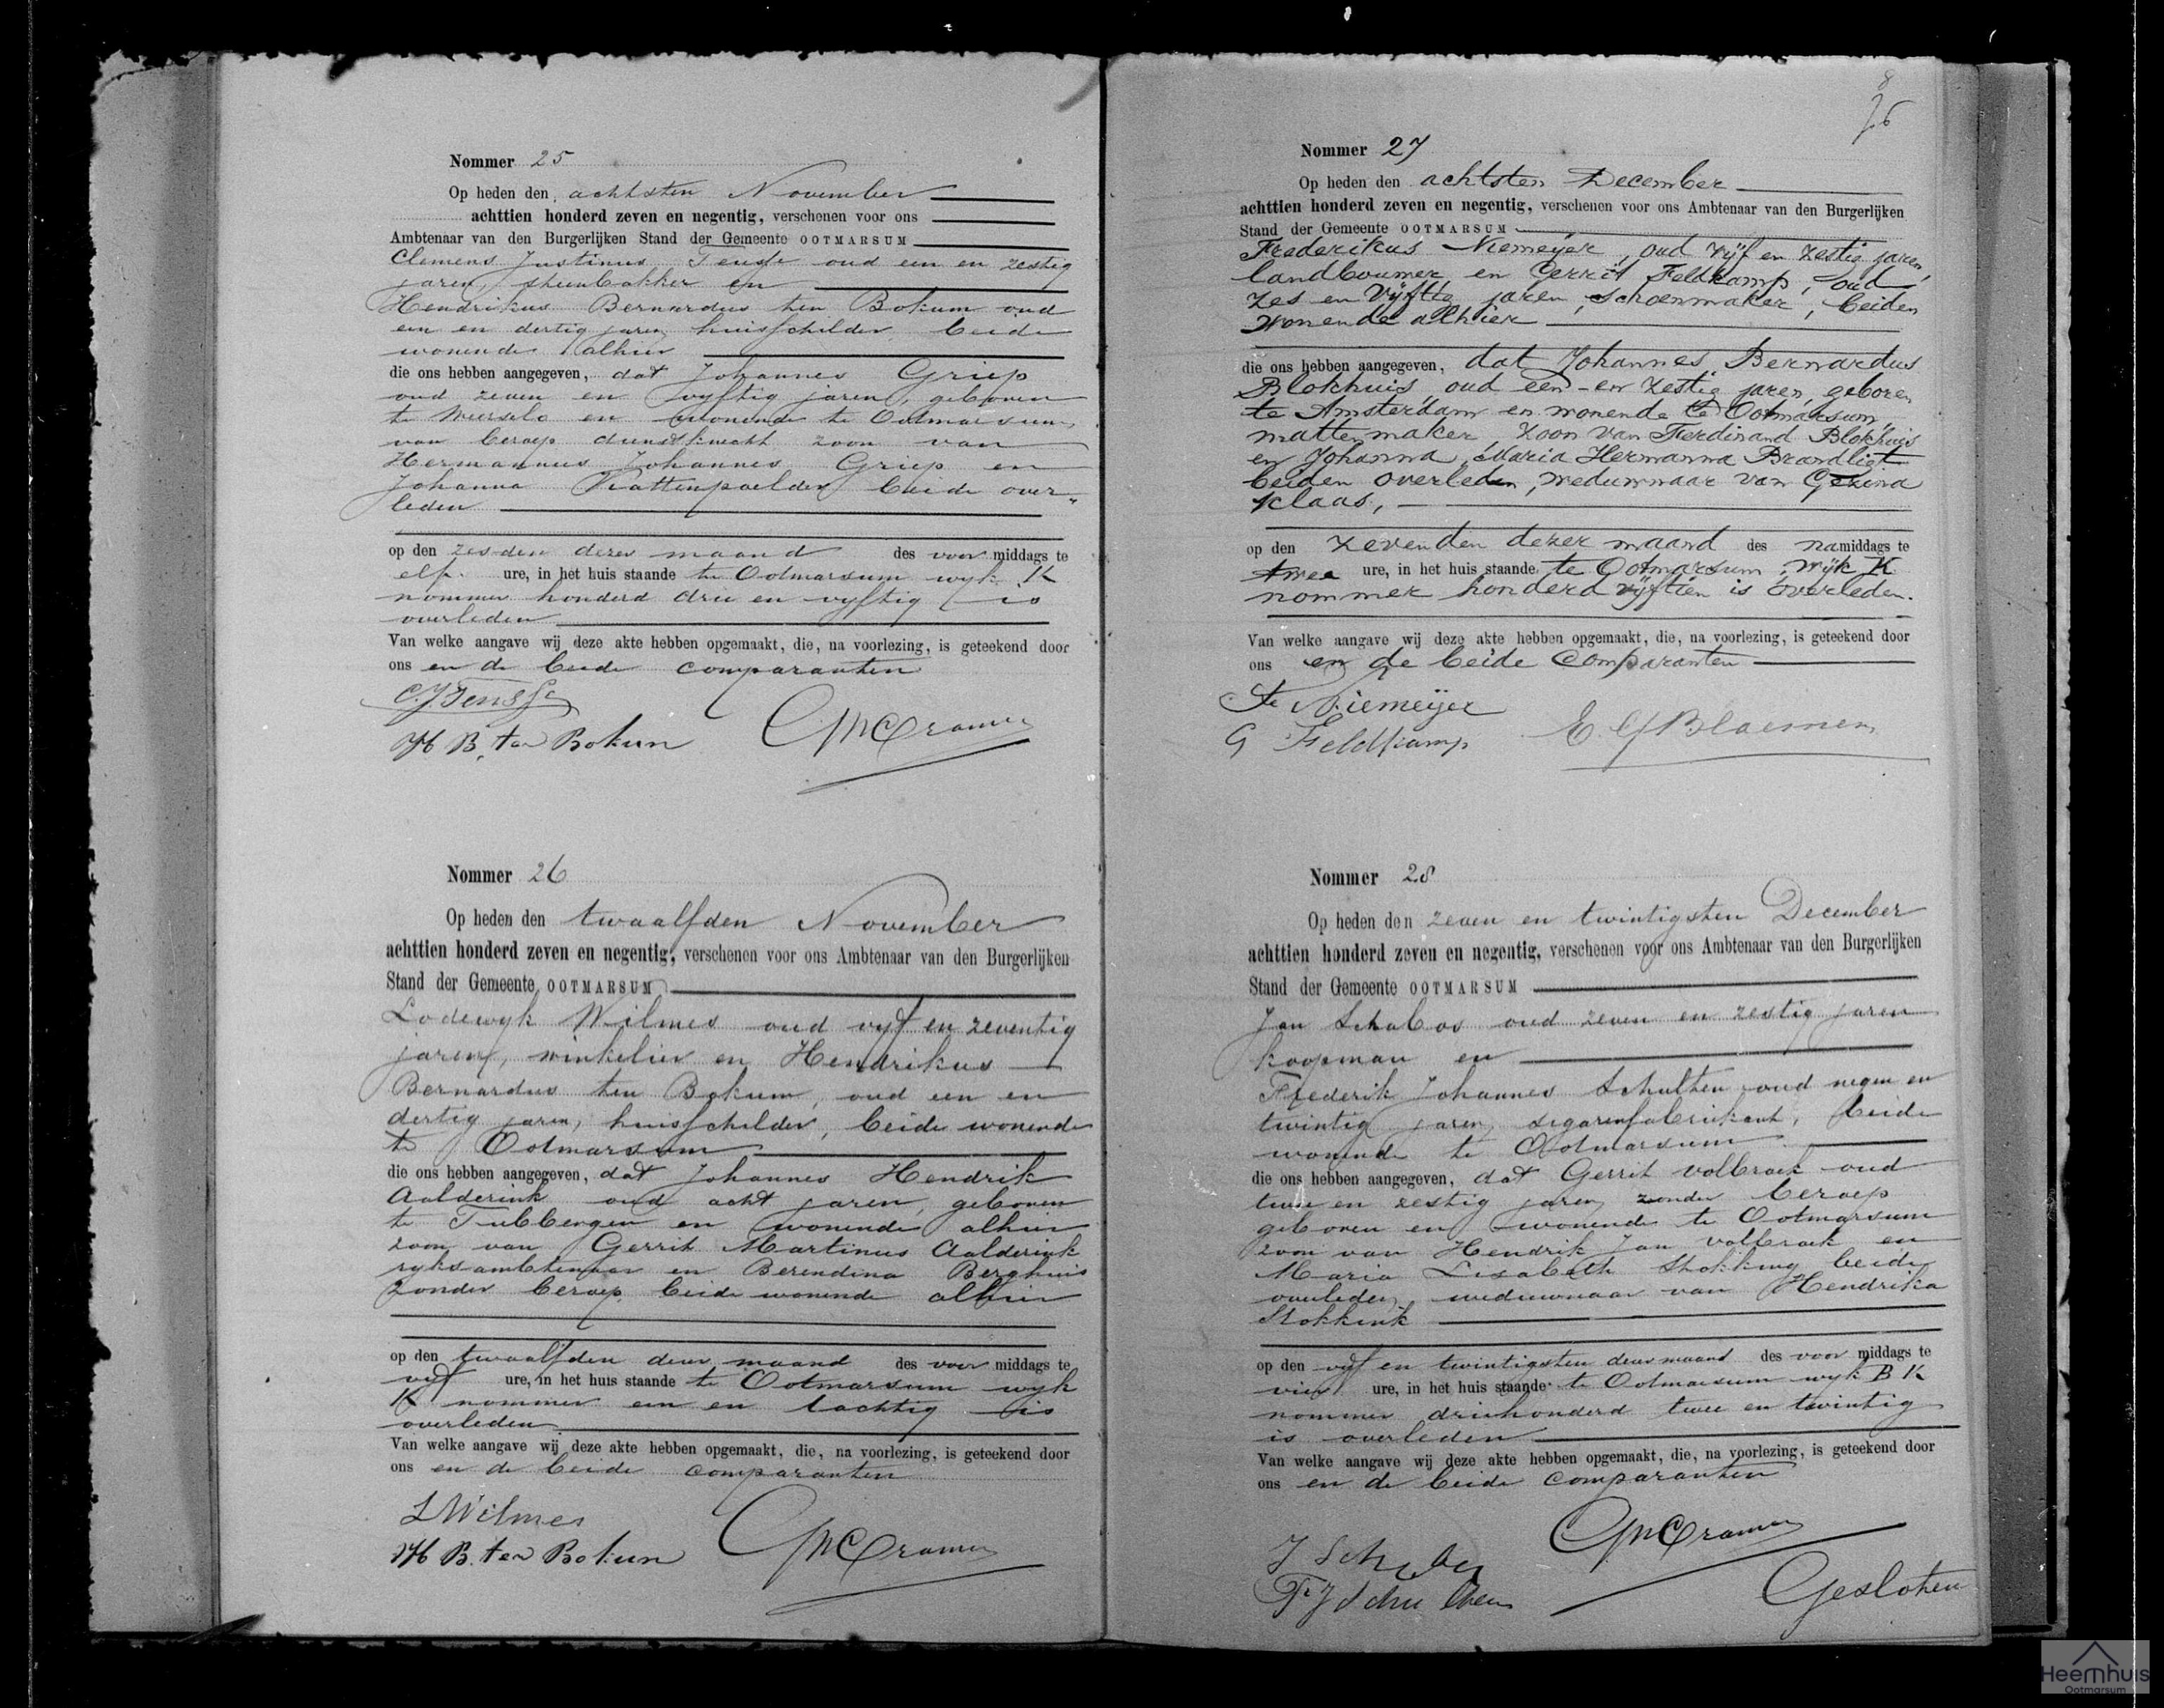 Nommer 25
Op heden den achtsten November
achttien honderd zeven en negentig, verschenen voor ons
Ambtenaar van den Burgerlijken Stand der Gemeente OOTMARSUM
Clemens Justinus oud een en zestig
jaren, en
Hendrikus Bernardus ten Bokum oud
een en dertig jaren huisschilder, beide
wonende alhier
die ons hebben aangegeven, dat Johannes Griep
oud zeven en vyftig jaren, geboren
te Weerselo en wonende te Ootmarsum,
van beroep dienstknecht zoon van
Hermannus Johannes Griep en
Johanna beide over-
leden
op den zesden dezer maand des voor middags te
elf ure, in het huis staande te Ootmarsum wyk K
nommer honderd drie en vyftig is
overleden
Van welke aangave wij deze akte hebben opgemaakt, die, na voorlezing, is geteekend door
ons en de beide comparanten
H B. ten Bokum
Cramer
Nommer 26
Op heden den twaalfden November
achttien honderd zeven en negentig, verschenen voor ons Ambtenaar van den Burgerlijken
Stand der Gemeente OOTMARSUM
Lodewyk Wilmes oud vyf en zeventig
jaren, winkelier en Hendrikus
Bernardus ten Bokum, oud een en
dertig jaren, huisschilder, beide wonende
te Ootmarsum
die ons hebben aangegeven, dat Johannes Hendrik
Aalderink oud acht jaren, geboren
te Tubbergen en wonende alhier
zoon van Gerrit Martinus Aalderink
ryksambtenaar en Berendina Berghuis
zonder beroep, beide wonende alhier
op den twaalfden dezer maand des voor middags te
vyf ure, in het huis staande te Ootmarsum wyk
K nommer een en tachtig is
overleden
Van welke aangave wij deze akte hebben opgemaakt, die, na voorlezing, is geteekend door
ons en de beide comparanten
L Wilmes
H B. ten Bokum
Cramer
Nommer 27
Op heden den achtsten December
achttien honderd zeven en negentig, verschenen voor ons Ambtenaar van den Burgerlijken
Stand der Gemeente OOTMARSUM
Frederikus Niemeijer, oud vijf en zestig jaren,
landbouwer en Gerrit Feldkamp, oud
zes en vijftig jaren, schoenmaker, beiden
wonende alhier
die ons hebben aangegeven, dat Johannes Bernardus
Blokhuis, oud een en zestig jaren, geboren
te Amsterdam en wonende te Ootmarsum,
mattenmaker, zoon van Ferdinand Blokhuis
en Johanna Maria Hermanna Brandligt
beiden overleden, weduwnaar van Gezina
Klaas,
op den zevenden dezer maand des namiddags te
twee ure, in het huis staande te Ootmarsum, wijk K
nommer honderd vijftien is overleden.
Van welke aangave wij deze akte hebben opgemaakt, die, na voorlezing, is geteekend door
ons en de beide comparanten
Niemeijer
G Feldkamp
Bloemen
Nommer 28
Op heden den zeven en twintigsten December
achttien honderd zeven en negentig, verschenen voor ons Ambtenaar van den Burgerlijken
Stand der Gemeente OOTMARSUM
Jan Schabos oud zeven en zestig jaren
koopman en
Frederik Johannes Schulten oud negen en
twintig jaren, sigarenfabrikant, beide
wonende te Ootmarsum
die ons hebben aangegeven, dat Gerrit Volbroek oud
twee en zestig jaren, zonder beroep
geboren en wonende te Ootmarsum
zoon van Hendrik Jan Volbroek en
Maria Lisabeth Stokking beide
overleden, weduwnaar van Hendrika
Stokkink
op den vyf en twintigsten dezer maand des voor middags te
vier ure, in het huis staande te Ootmarsum wyk B K
nommer driehonderd twee en twintig
is overleden
Van welke aangave wij deze akte hebben opgemaakt, die, na voorlezing, is geteekend door
ons en de beide comparanten
Cramer
F J Schulten
Gesloten
Heemhuis
Ootmarsum